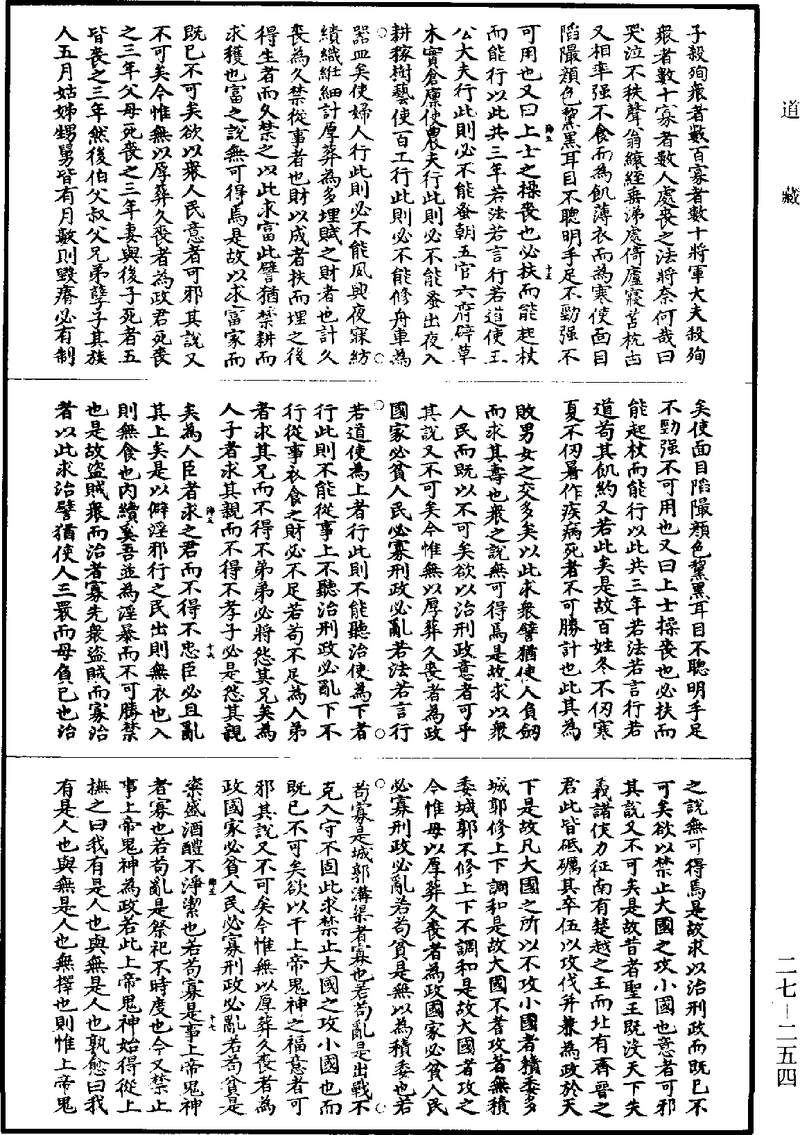 道藏
子殺殉衆者數百寡者數十將軍大夫殺殉
衆者數十寡者數人處喪之法將奈何哉曰
哭泣不秩聲翁縗絰垂涕處倚廬寢苫枕凷
又相率强不食而為飢薄衣而為寒使面目
陷䧟顔色黧黑耳目不聰明手足不勁强不
可用也又曰上士之操喪也必扶而能起杖
而能行以此共三年若法若言行若道使王
公大夫行此則必不能蚤朝五官六府辟草
木實倉廩使農夫行此則必不能蚤出夜入
耕稼樹藝使百工行此則必不能修舟車為
器皿矣使婦人行此則必不能夙興夜寐紡
績織絍細計厚葬為多埋賦之財者也計久
喪為久禁從事者也財以成者扶而埋之後
得生者而久禁之以此求富此譬猶禁耕而
求穫也富之說無可得焉是故以求富家而
既已不可矣欲以衆人民意者可邪其說又
不可矣今惟無以厚葬久喪者為政君死喪
之三年父母死喪之三年妻與後子死者五
皆喪之三年然後伯父叔父兄弟孽子其族
人五月姑姊甥舅皆有月數則毀瘠必有制
矣使面目陷䧟顔色黧黑耳目不聰明手足
不勁强不可用也又曰上士操喪也必扶而
能起杖而能行以此共三年若法若言行若
道苟其飢約又若此矣是故百姓冬不仞寒
夏不仞暑作疾病死者不可勝計也此其為
敗男女之交多矣以此求衆譬猶使人負劒
而求其壽也衆之說無可得焉是故求以衆
人民而既以不可矣欲以治刑政意者可乎
其說又不可矣今惟無以厚葬久喪者為政
國家必貧人民必寡刑政必亂若法若言行
若道使為上者行此則不能聽治使為下者
行此則不能從事上不聽治刑政必亂下不
行從事衣食之財必不足若苟不足為人弟
者求其兄而不得不弟弟必將怨其兄矣為
人子者求其親而不得不孝子必是怨其親
矣為人臣者求之君而不得不忠臣必且亂
其上矣是以僻淫邪行之民出則無衣也入
則無食也内續奚吾並為淫暴而不可勝禁
也是故盜賊衆而治者寡先衆盜賊而寡治
者以此求治譬猶使人三睘而毋負已也治
之說無可得焉是故求以治刑政而既已不
可矣欲以禁止大國之攻小國也意者可邪
其說又不可矣是故昔者聖王既没天下失
義諸侯力征南有楚越之王而北有齊晉之
君此皆砥礪其卒伍以攻伐并兼為政於天
下是故凡大國之所以不攻小國者積委多
城郭修上下調和是故大國不耆攻者無積
委城郭不修上下不調和是故大國者攻之
今惟毋以厚葬久喪者為政國家必貧人民
必寡刑政必亂若苟貧是無以為積委也若
苟寡是城郭溝渠者寡也若苟亂是出戰不
克入守不固此求禁止大國之攻小國也而
既已不可矣欲以干上帝鬼神之福意者可
邪其說又不可矣今惟無以厚葬久喪者為
政國家必貧人民必寡刑政必亂若苟貧是
粢盛酒醴不淨潔也若苟寡是事上帝鬼神
者寡也若苟亂是祭祀不時度也今又禁止
事上帝鬼神為政若此上帝鬼神始得從上
撫之曰我有是人也與無是人也孰愈曰我
有是人也與無是人也無擇也則惟上帝鬼
二七－二五四